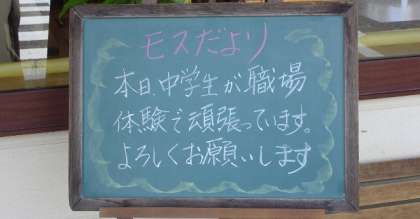 モスだより
本日、中学生が職場
体験で頑張っています。
よろしくお願いします